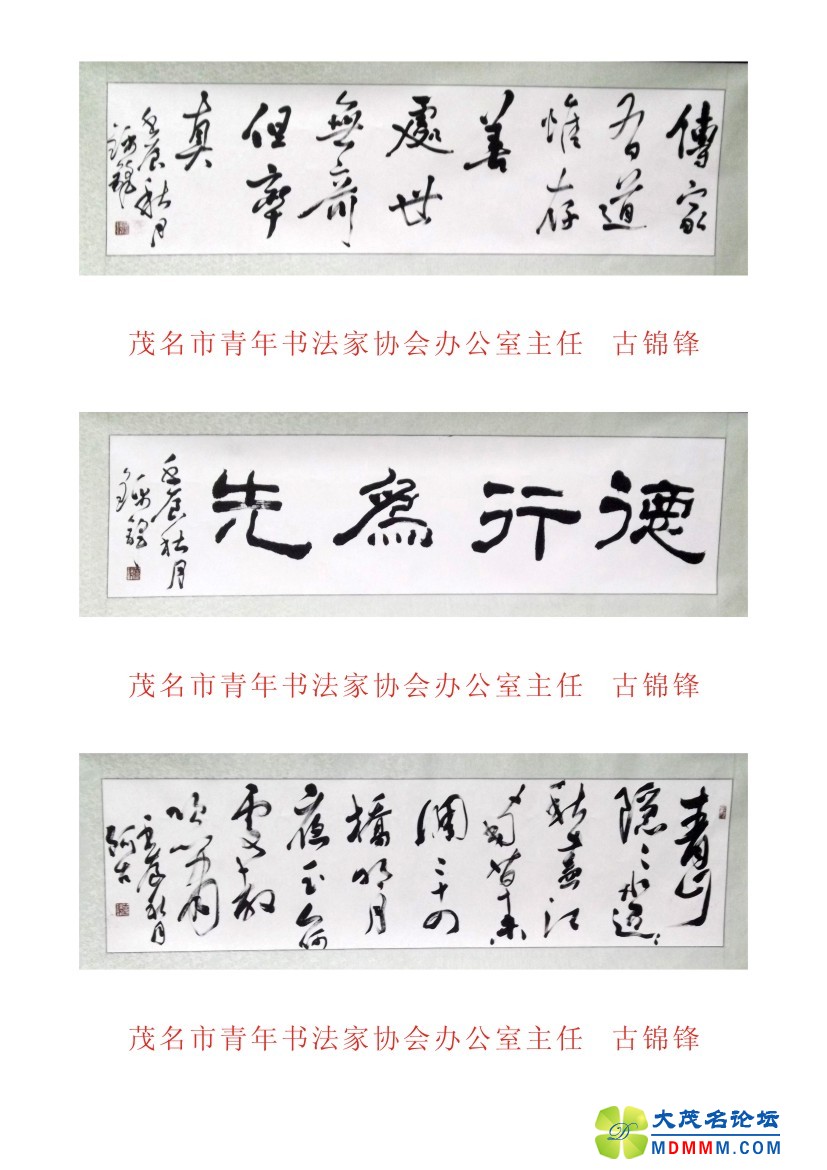 傳家
有道
惟存
善
處世
無奇
但率
真
壬辰秋月
錦鋒
茂名市青年书法家协会办公室主任 古锦锋
德行爲先
壬辰秋月
錦鋒
茂名市青年书法家协会办公室主任 古锦锋
青山
隱〻水迢〻
秋盡江
南草未
凋二十四
橋明月
夜玉人何
處教
吹簫
壬辰秋月
茂名市青年书法家协会办公室主任 古锦锋
大茂名论坛
MDMMM.COM